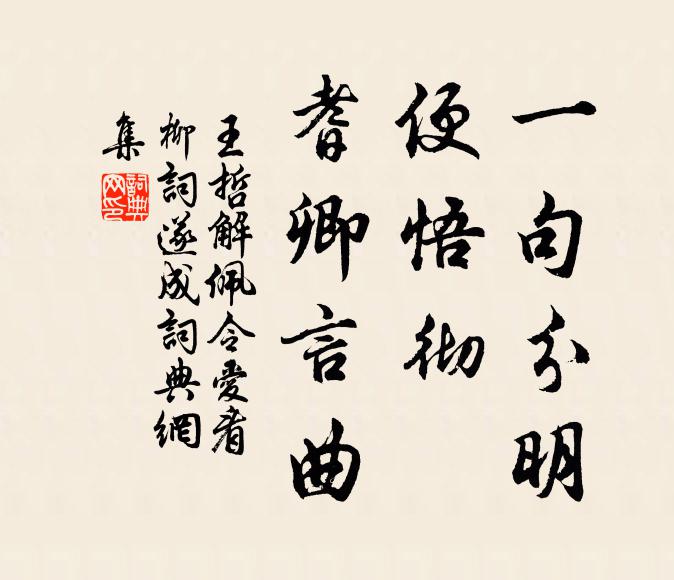 一句分明
便悟彻
耆卿言曲
王哲解佩令愛看
柳詞遂成詞典網
集
詞典
网印